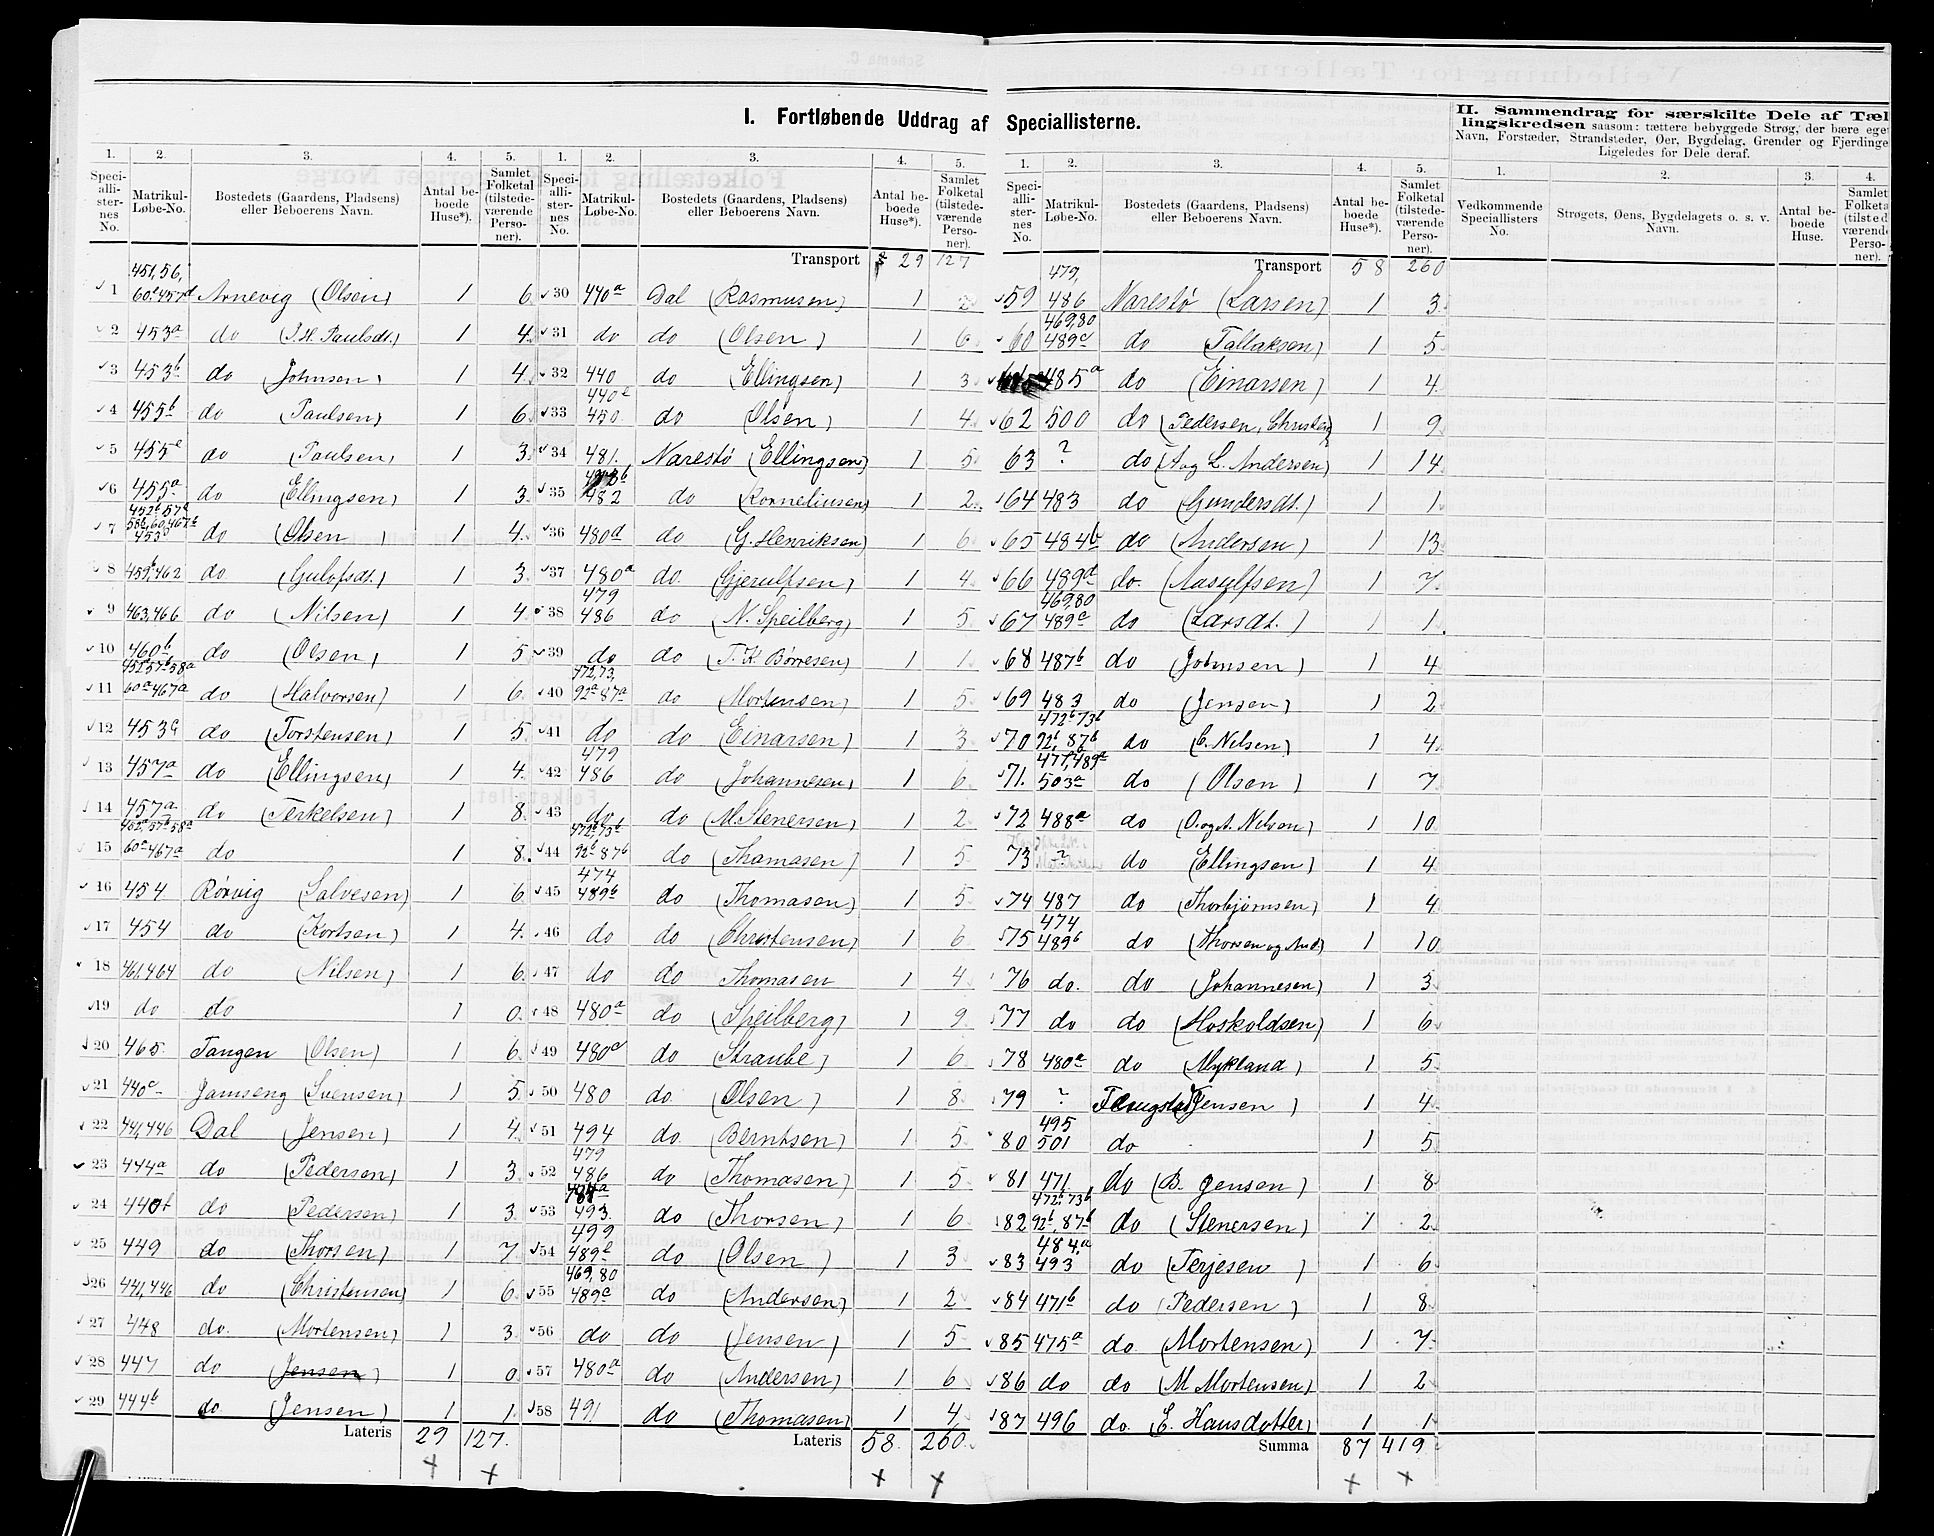 I. Fortløbende Uddrag af Speciallisterne.
II. Sammendrag for særskilte Dele af Tæl
lingskredsen saasom: tættere bebyggede Strøg, der bære eget
Navn, Forstæder, Strandsteder, Øer, Bygdelag, Grender og Fjerdinge
Ligeledes for Dele deraf.
1. 2. 3. 4. 5.
Speciallisternes No. Matrikul-Løbe-No. Bostedets (Gaardens, Pladsens) eller Beboerens Navn. Antal beboede Huse*). Samlet Folketal (tilstedeværende Personer).
451,56,
1 60e457d Arnevig (Olsen) 1 6
2 453a do (J.H. Paulsdt.) 1 4
3 453b do Johnsen) 1 4
4 455b do (Paulsen) 1 6
5 455c do (Paulsen) 1 3
6 455a do (Ellingsen) 1 3
7 do (Olsen) 1 4
8 459b,462 do (Gulofsdt.) 1 3
9 463,466 do (Nilsen) 1 4
10 460b do (Olsen) 1 5
452b57b58a
11 60a467a do (Halvorsen) 1 6
12 453c do (Torstensen) 1 5
13 457a do (Ellingsen) 1 4
14 457a do (Terkelsen) 1 8
452a,57b58a
15 60a467a do 1 8
16 454 Rørvig (Salvesen) 1 6
17 454 do (Kortsen) 1 4
18 461,464 do (Nilsen) 1 6
19 do do 1 0
20 465 Tangen (Olsen) 1 6
21 440c Jamseng (Svensen) 1 5
22 441,446 Dal (Jensen) 1 4
23 444a do (Pedersen) 1 3
24 440b do (Pedersen) 1 3
25 449 do (Thorsen) 1 7
26 441,446 do (Christensen) 1 6
27 448 do. (Mortensen) 1 3
28 447 do (Jensen) 1 0
29 444b do. (Jensen) 1 1
Lateris 29 127.
1. 2. 3. 4. 5.
Speciallisternes No. Matrikul-Løbe-No. Bostedets (Gaardens, Pladsens) eller Beboerens Navn. Antal beboede Huse*). Samlet Folketal (tilstedeværende Personer).
Transport 29 127
30 440a Dal (Rasmusen) 1 2
31 do do (Olsen) 1 6
32 440 do (Ellingsen) 1 3
440e
33 450 do (Olsen) 1 4
34 481. Narestö (Ellingsen) 1 5
35 482 do (Korneliusen) 1 2
36 480d do (G. Henriksen) 1 6
37 480a do (Gjerulfsen) 1 4
479
38 486 do (N. Speilberg) 1 5
39 do do (T. K. Børresen) 1 1
472,73,
40 92a87a do (Mortensen) 1 5
41 do do (Einarsen) 1 3
479
42 486 do (Johannesen) 1 6
43 do do (M. Stenersen) 1 2
472b,73b
44 92b87b do (Thomasen) 1 5
474
45 489b do (Thomasen) 1 5
46 do do (Christensen) 1 6
47 do do Thomasen 1 4
48 480a do (Speilberg) 1 9
49 480c do (Straube) 1 6
50 480 do (Olsen) 1 8
51 494 do (Berntsen) 1 5
479
52 486 do (Thomasen) 1 5
53 493. do (Thorsen) 1 6
499
54 489e do (Olsen) 1 3
469,80
55 489c do (Andersen) 1 2
56 do do (Jensen) 1 5
57 480a do (Andersen) 1 6
58 491 do (Thomasen) 1 4
Lateris 58. 260.
1. 2. 3. 4. 5.
Speciallisternes No. Matrikul-Løbe-No. Bostedets (Gaardens, Pladsens) eller Beboerens Navn. Antal beboede Huse*). Samlet Folketal (tilstedeværende Personer).
Transport 58 260
479,
59 486 Narestö (Larsen) 1 3
469,80
60 489c do (Tallaksen) 1 5
485a do (Einarsen) 1 4
62 500 do (Pedersen, 1 9
63 ? do (Aog L. Andersen) 1 14
64 483 do (Gundersdt.) 1 1
65 484b do (Andersen) 1 13
66 489d do. (Aasulfsen) 1 7
469,80
67 489c do (Larsdt.) 1 1
68 487b do (Johnsen) 1 4
69 483 do (Jensen) 1 2
472b73b
70 92b,87b do (C. Nilsen) 1 4
71. 503a do (Olsen) 1 7
72 488a do (O.og A. Nilsen) 1 10
73 ? do (Ellingsen) 1 4
74 487 do (Thorbjørnsen) 1 4
474
75 489b do (Thorsen og And) 1 10
76 do. do (Johannesen) 1 3
77 do do (Hoskoldsen) 1 6
78 480a do (Mykland) 1 5
79 ? (Jensen) 1 4
495
80 501 do 1 5
81 471 do (B. Jensen) 1 8
472b,73b
82 92b,87b do (Stenersen) 1 2
484,a
83 493 do (Terjesen) 1 6
84 471b do (Pedersen) 1 8
85 475a do. (Mortensen) 1 7
86 do do (M Mortensen) 1 2
87 496 do. (E. Hansdotter) 1 1
Summa 87 419
1. 2. 3. 4.
Vedkommende Speciallisters No. Strøgets, Øens, Bygdelagets o. s. v. Navn. Antal beboede Huse. Samlet Folketa (tilsted værende Personer).